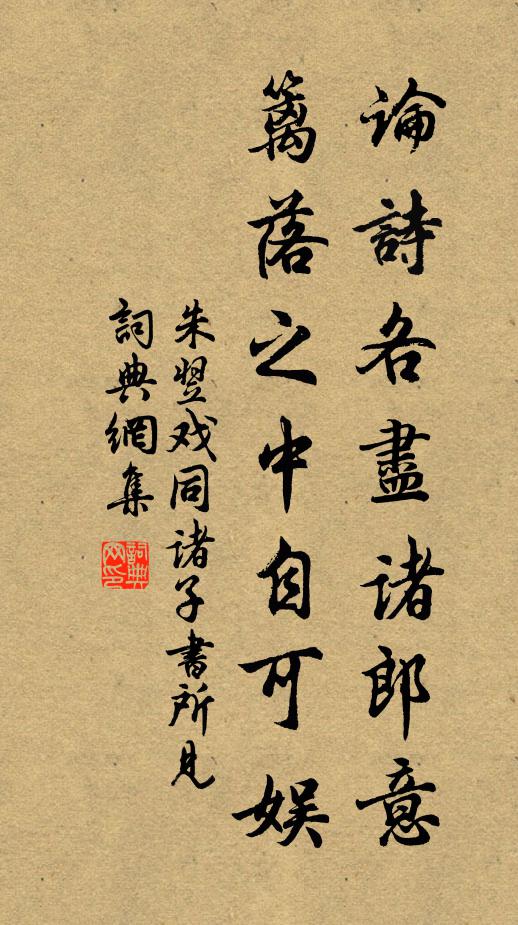 論詩各盡諸郎意
籬落之中自可娱
朱翌戏同诸子書所見
詞典網集
詞典
网印